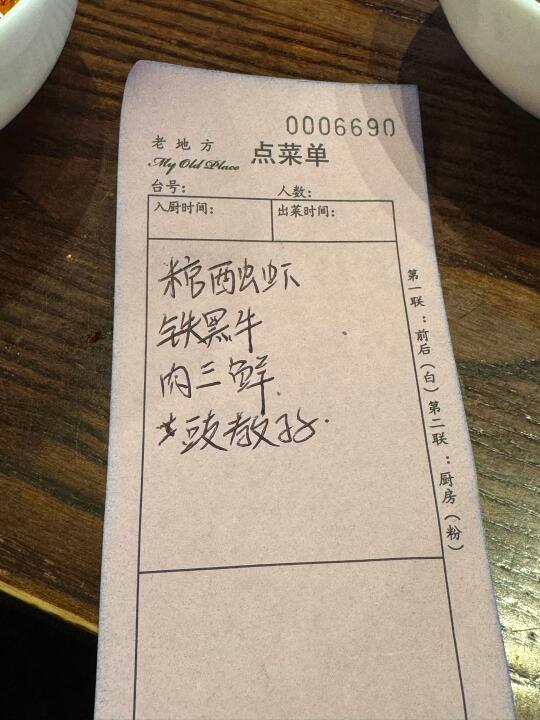 0006690
老地方 点菜单
My Old Place
台号: 人数:
入厨时间: 出菜时间:
铁黑牛
肉三鲜
第一联:前后(白)第二联:厨房(粉)